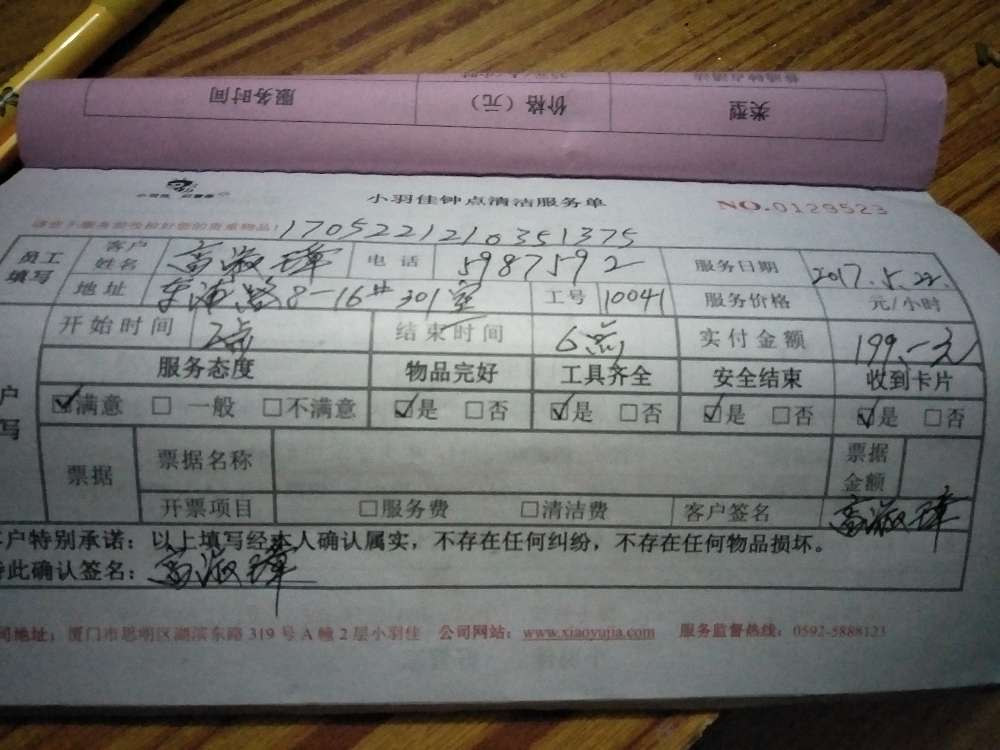 服务时间 价格（元） 类型
小羽佳钟点清洁服务单 NO.0129523
1705221210351375
员工填写 客户姓名 高淑璋 电话 5987592 服务日期 2017.5.22.
地址 东浦路8-16# 301室 工号 10041 服务价格 元/小时
开始时间 2点 结束时间 6点 实付金额 199.-元
服务态度 物品完好 工具齐全 安全结束 收到卡片
满意 一般 不满意 是 否 是 否 是 否 是 否
票据 票据名称 票据金额
开票项目 服务费 清洁费 客户签名 高淑璋
户特别承诺：以上填写经本人确认属实，不存在任何纠纷，不存在任何物品损坏。
此确认签名：高淑璋
地址：厦门市思明区湖滨东路 319 号 A 幢 2 层小羽佳 公司网站：www.xiaoyujia.com 服务监督热线：0592-5888123